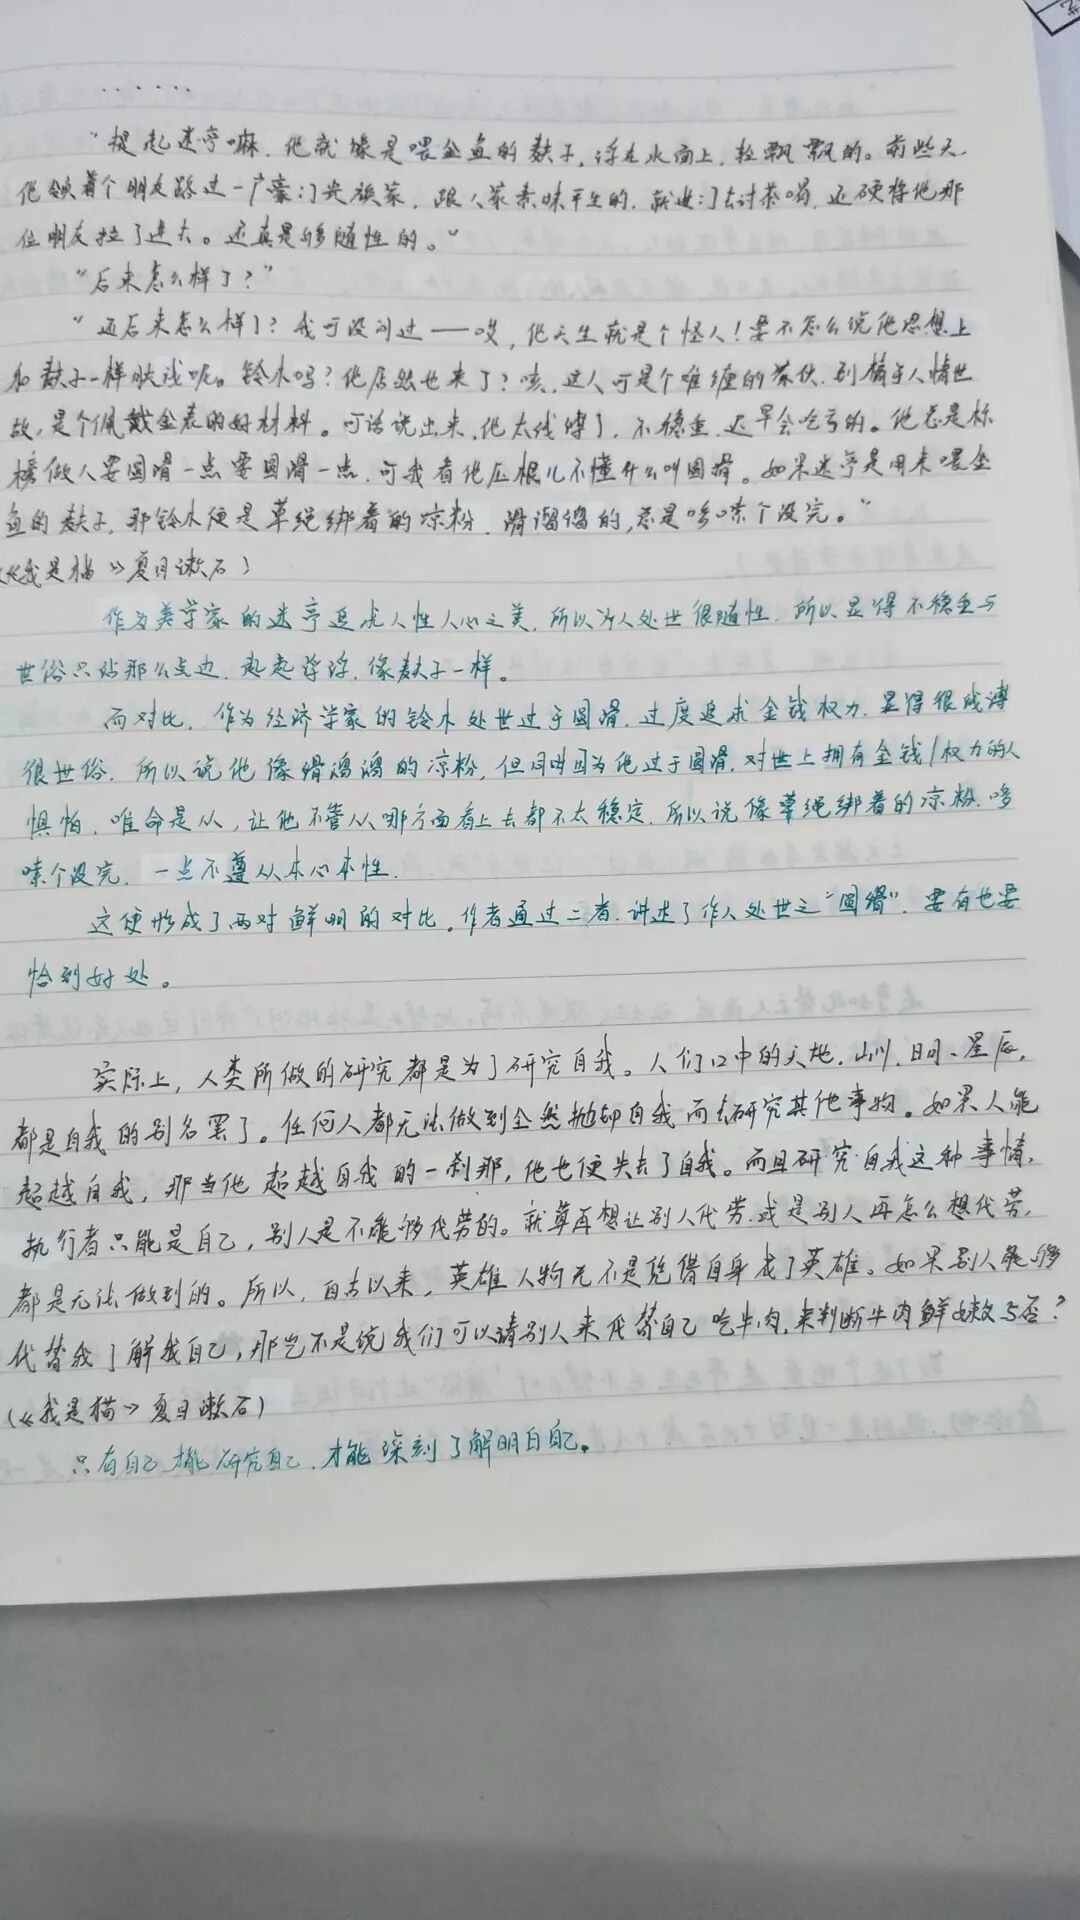 ......
“提起迷亭嘛，他就像是喂金鱼的麸子，浮在水面上，轻飘飘的。前些天，
他领着个朋友路过一户豪门贵族家，跟人家素昧平生的，就进门去讨茶喝，还硬将他那
位朋友拉了进去。还真是够随性的。”
“后来怎么样了？”
“还后来怎么样了？我可没问过——哎，他天生就是个怪人！要不怎么说他思想上
和麸子一样肤浅呢。铃木吗？他居然也来了？咳，这人可是个难缠的家伙，别精于人情世
故，是个佩戴金表的好材料。可话说出来，他太浅薄了，不稳重，迟早会吃亏的。他总是标
榜做人要圆滑一点要圆滑一点，可我看他压根儿不懂什么叫圆滑。如果迷亭是用来喂金
鱼的麸子，那铃木便是草绳绑着的凉粉，滑溜溜的，总是哆嗦个没完。”
（《我是猫》夏目漱石）
作为美学家的迷亭追求人性人心之美，所以为人处世很随性，所以显得不稳重与
世俗只沾那么点边，悬悬浮浮，像麸子一样。
而对比，作为经济学家的铃木处世过于圆滑，过度追求金钱权力，显得很浅薄
很世俗，所以说他像滑溜溜的凉粉，但同时因为他过于圆滑，对世上拥有金钱/权力的人
惧怕，唯命是从，让他不管从哪方面看上去都不太稳定，所以说像草绳绑着的凉粉，哆
嗦个没完，一点不遵从本心本性.
这便形成了两对鲜明的对比。作者通过二者，讲述了作人处世之“圆滑”，要有也要
恰到好处。
实际上，人类所做的研究都是为了研究自我。人们口中的天地、山川、日月、星辰，
都是自我的别名罢了。任何人都无法做到全然抛却自我而去研究其他事物。如果人能
超越自我，那当他超越自我的一刹那，他也便失去了自我。而且研究自我这种事情，
执行者只能是自己，别人是不能够代劳的。就算再想让别人代劳，或是别人再怎么想代劳，
都是无法做到的。所以，自古以来，英雄人物无不是凭借自身成了英雄。如果别人能够
代替我了解我自己，那岂不是说我们可以请别人来代替自己吃牛肉，来判断牛肉鲜嫩与否？
（《我是猫》夏目漱石）
只有自己才能研究自己，才能深刻了解明白自己。